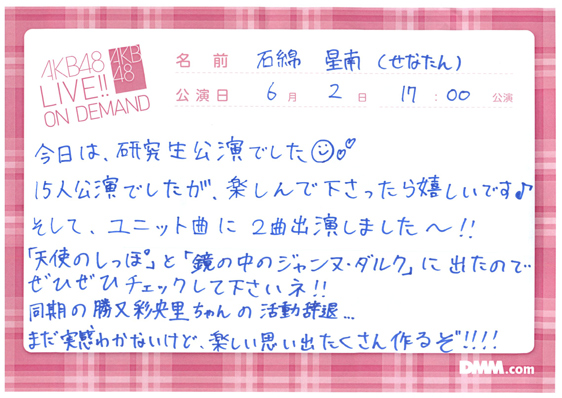 AKB48
LIVE!!
ON DEMAND
AKB
48
名前 石綿 星南 (せなたん)
公演日 6月 2日 17:00 公演
今日は、研究生公演でした
15人公演でしたが、楽しんで下さったら嬉しいです♪
そして、ユニット曲に 2曲出演しました〜!!
「天使のしっぽ」と「鏡の中のジャンヌ・ダルク」に出たので
ぜひぜひチェックして下さいネ!!
同期の勝又彩央里ちゃんの活動辞退...
まだ実感わかないけど、楽しい思い出たくさん作るぞ!!!!
DMM.com